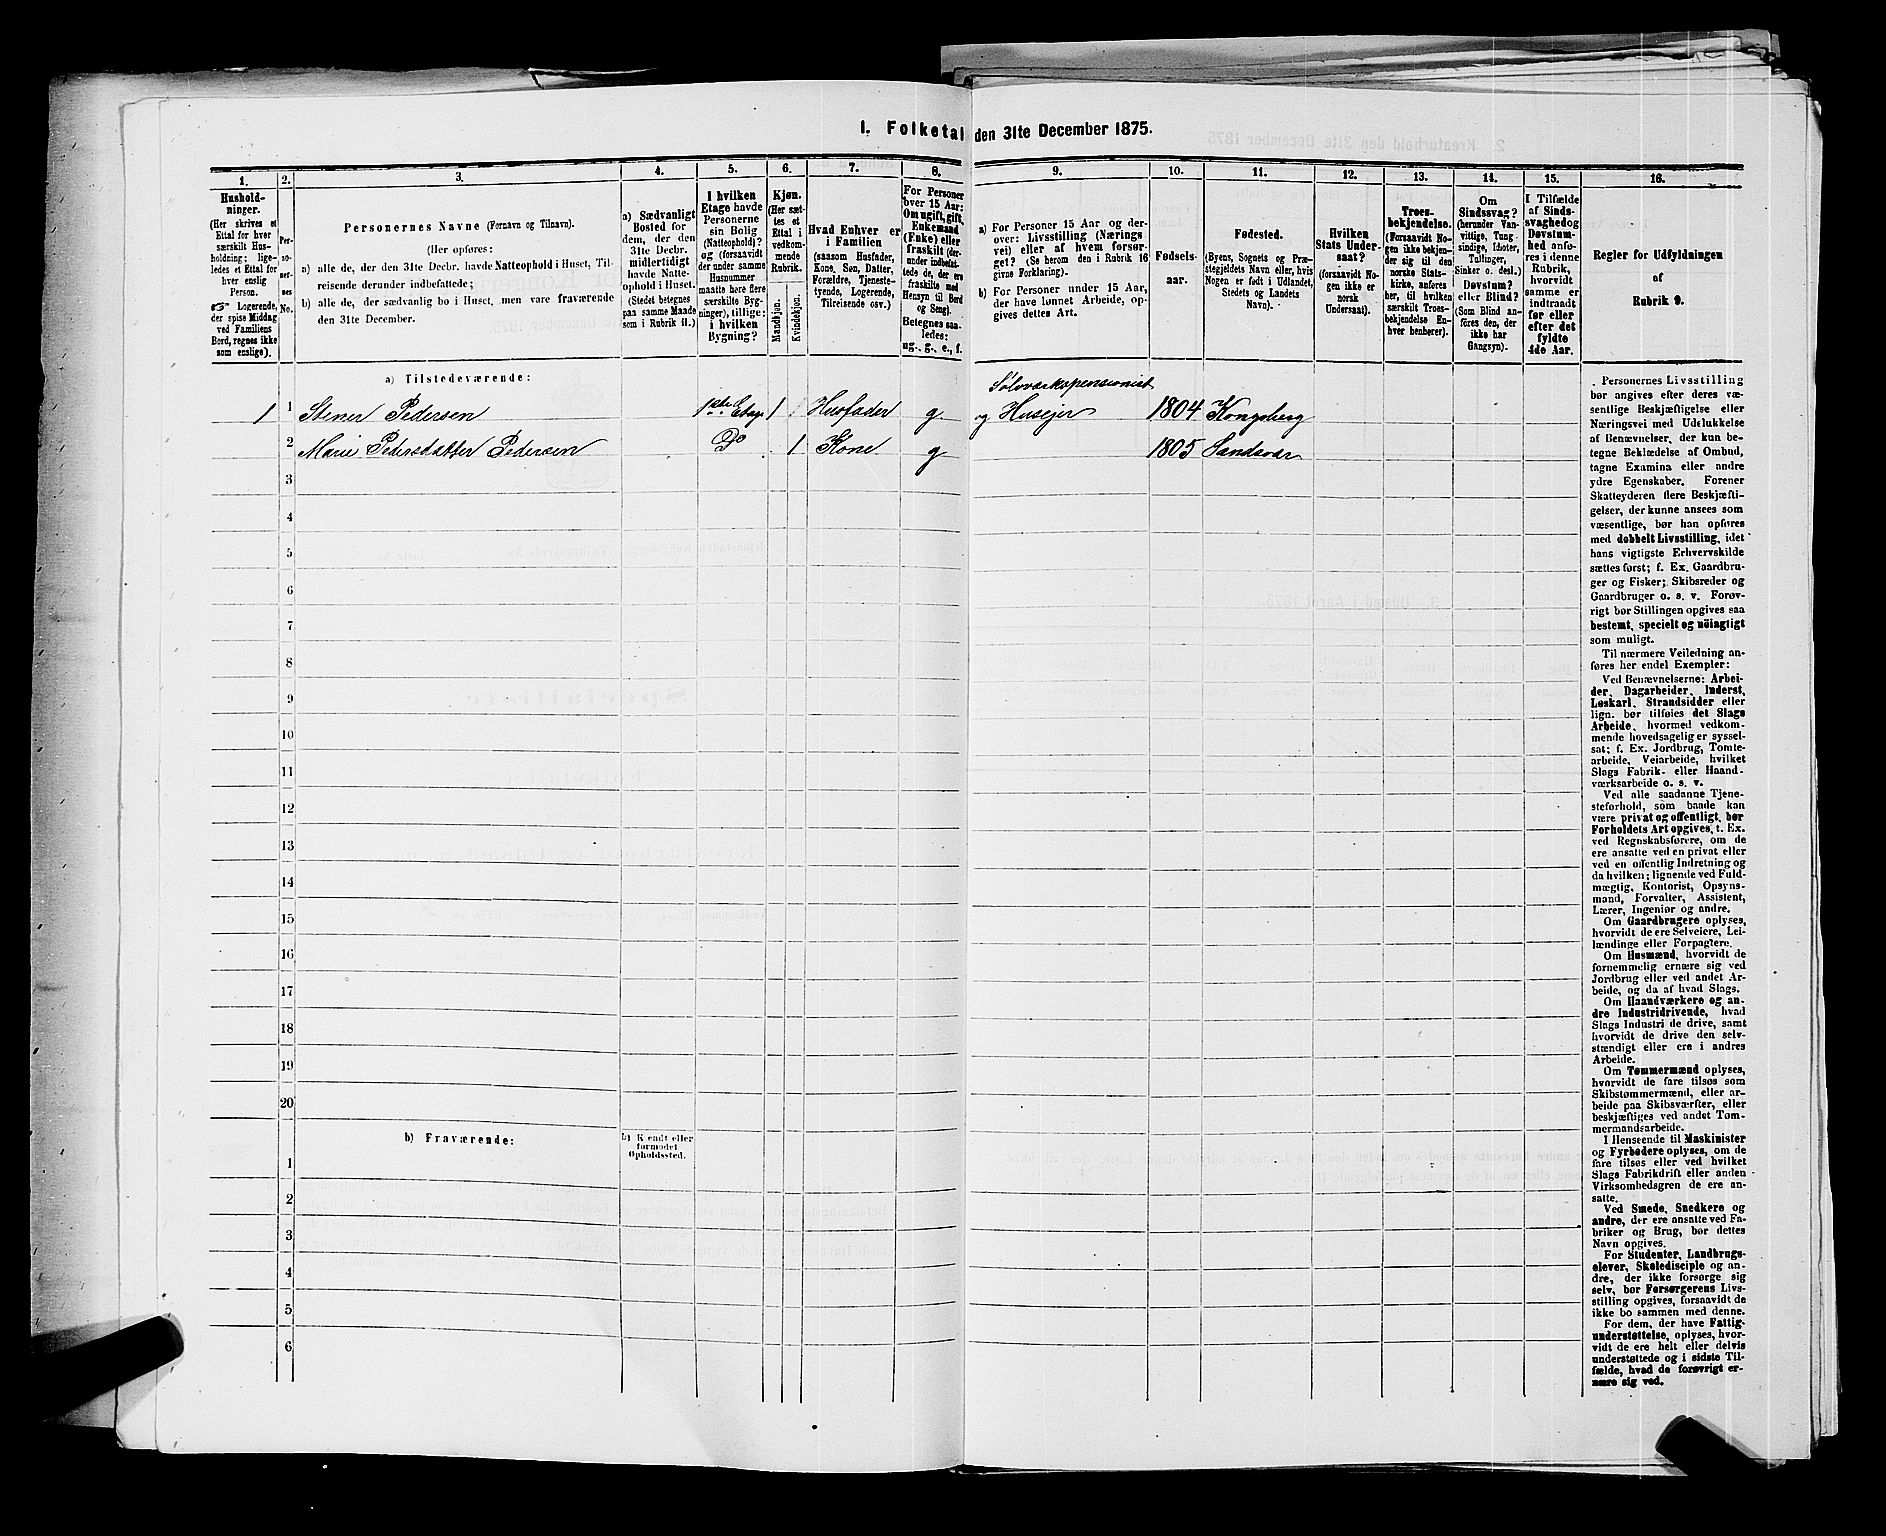 1. Folketal den 31te December 1875.
1.
2.
3.
4.
5.
6.
7.
8.
9.
10.
11.
12.
13.
14.
15.
16.
Husholdninger.
(Her skrives et
Ettal for hver
særskilt Husholdning;
ligeledes et Ettal for
hver enslig
Person.
☞ Logerende,
der spise Middag
ved Familiens
Bord, regnes ikke
som enslige).
Personernes No.
Personernes Navne (Fornavn og Tilnavn).
(Her opføres:
a) alle de, der den 31te Decbr. havde Natteophold i Huset, Tilreisende derunder indbefattede;
b) alle de, der sædvanlig bo i Huset, men vare fraværende
den 31te December.
a) Sædvanligt
Bosted for
dem, der den
31te Decbr.
midlertidigt
havde Natteophold i Huset.
(Stedet betegnes
paa samme Maade
som i Rubrik 11.)
I hvilken
Etage havde
Personerne
sin Bolig
(Natteophold)?
og (forsaavidt
der under samme
Husnummer
maatte høre flere
særskilte Bygninger), tillige:
i hvilken
Bygning?
Kjøn.
(Her sættes et
Ettal i
vedkommende
Rubrik.
Mandkjøn.
Kvindekjøn.
Hvad Enhver er
i Familien
(saasom Husfader,
Kone, Søn, Datter,
Forældre, Tjenestetyende, Logerende,
Tilreisende osv.)
For Personer
over 15 Aar:
Om ugift, gift,
Enkemand
(Enke) eller
fraskilt (derunder indbefattede de, der ere
fraskilte med
Hensyn til Bord
og Seng).
Betegnes saaledes:
ug., g., e., f.
a) For Personer 15 Aar og derover: Livsstilling (Næringsvei) eller af hvem forsørget? (Se herom den i Rubrik 16
givne Forklaring).
b) For Personer under 15 Aar,
der have lønnet Arbeide, opgives dettes Art.
Fødselsaar.
Fødested.
(Byens, Sognets og Præstegjeldets Navn eller, hvis
Nogen er født i Udlandet,
Stedets og Landets
Navn).
Hvilken
Stats Undersaat?
(forsaavidt Nogen ikke er
norsk
Undersaat).
Troesbekjendelse.
(Forsaavidt Nogen ikke bekjender sig til den
norske Statskirke, anføres
her, til hvilken
særskilt Troesbekjendelse Enhver henhører).
Om
Sindssvag?
(herunder Vanvittige, Tungsindige, Idioter,
Tullinger,
Sinker o. desl.)
Døvstum?
eller Blind?
(Som Blind anføres den, der
ikke har
Gangsyn).
I Tilfælde
af Sindssvaghed og
Døvstumhed anføres i denne
Rubrik,
hvorvidt
samme er
indtraadt
før eller
efter det
fyldte
4de Aar.
Regler for Udfyldningen
af
Rubrik 9.
a) Tilstedeværende:
Sølvværkspensionist
1 1 Stener Pedersen 1ste Etage 1 Husfader g og Husejer 1804 Kongsberg
2 Marie Pedersdatter Pedersen Do 1 Kone g 1805 Sandsvær
3
4
5
6
7
8
9
10
11
12
13
14
15
16
17
18
19
20
b) Fraværende:
b) Kjendt eller
formodet
Opholdssted.
1
2
3
4
5
6
Personernes Livsstilling
bør angives efter deres væsentlige Beskjæftigelse eller
Næringsvei med Udelukkelse
af Benævnelser, der kun betegne Beklædelse af Ombud,
tagne Examina eller andre
ydre Egenskaber. Forener
Skatteyderen flere Beskjæftigelser, der kunne ansees som
væsentlige, bør han opføres
med dobbelt Livsstilling, idet
hans vigtigste Erhvervskilde
sættes først; f. Ex. Gaardbruger og Fisker; Skibsreder og
Gaardbruger o. s. v. Forøvrigt bør Stillingen opgives saa
bestemt, specielt og nöiagtigt
som muligt.
Til nærmere Veiledning anføres her endel Exempler:
Ved Benævnelserne: Arbeider, Dagarbeider, Inderst,
Løskarl, Strandsidder eller
lign. bør tilføies det Slags
Arbeide, hvormed vedkommende hovedsagelig er sysselsat; f. Ex. Jordbrug, Tomtearbeide, Veiarbeide, hvilket
Slags Fabrik- eller Haandværksarbeide o. s. v.
Ved alle saadanne Tjenesteforhold, som baade kan
være privat og offentligt, bør
Forholdets Art opgives, t. Ex.
ved Regnskabsførere, om de
ere ansatte ved en privat eller
ved en offentlig Indretning og
da hvilken; lignende ved Fuldmægtig, Kontorist, Opsynsmand, Forvalter, Assistent,
Lærer, Ingeniør og andre.
Om Gaardbrugere oplyses,
hvorvidt de ere Selveiere, Leilændinge eller Forpagtere.
Om Husmænd, hvorvidt de
fornemmelig ernære sig ved
Jordbrug eller ved andet Arbeide, og da af hvad Slags.
Om Haandværkere og andre Industridrivende, hvad
Slags Industri de drive, samt
hvorvidt de drive den selvstændigt eller ere i andres
Arbeide.
Om Tømmermænd oplyses,
hvorvidt de fare tilsøs som
Skibstømmermænd, eller arbeide paa Skibsværfter, eller
beskjæftiges ved andet Tømmermandsarbeide.
I Henseende til Maskinister
og Fyrbødere oplyses, om de
fare tilsøs eller ved hvilket
Slags Fabrikdrift eller anden
Virksomhedsgren de ere ansatte.
Ved Smede, Snedkere og
andre, der ere ansatte ved Fabriker og Brug, bør dettes
Navn opgives.
For Studenter, Landbrugselever, Skoledisciple og andre, der ikke forsørge sig
selv, bør Forsørgerens Livsstilling opgives, forsaavidt de
ikke bo sammen med denne.
For dem, der have Fattigunderstøttelse, oplyses, hvorvidt de ere helt eller delvis
understøttede og i sidste Tilfælde, hvad de forøvrigt ernære sig ved.